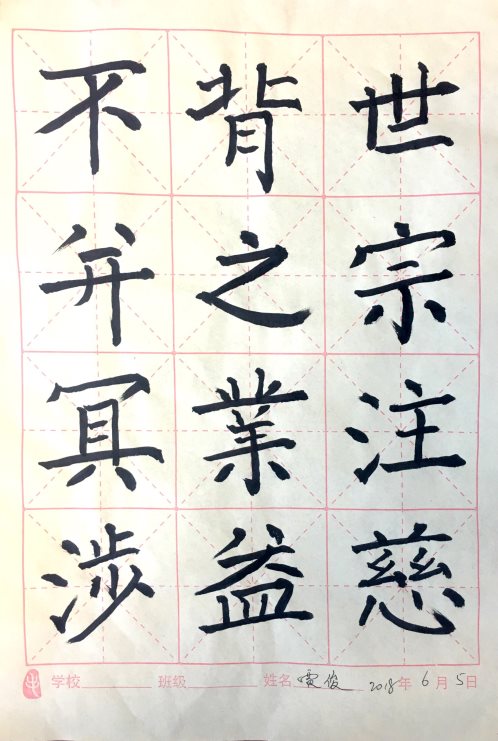 世宗注慈
背之業益
不并冥涉
学校 班级 姓名 俊 2018年6月5日